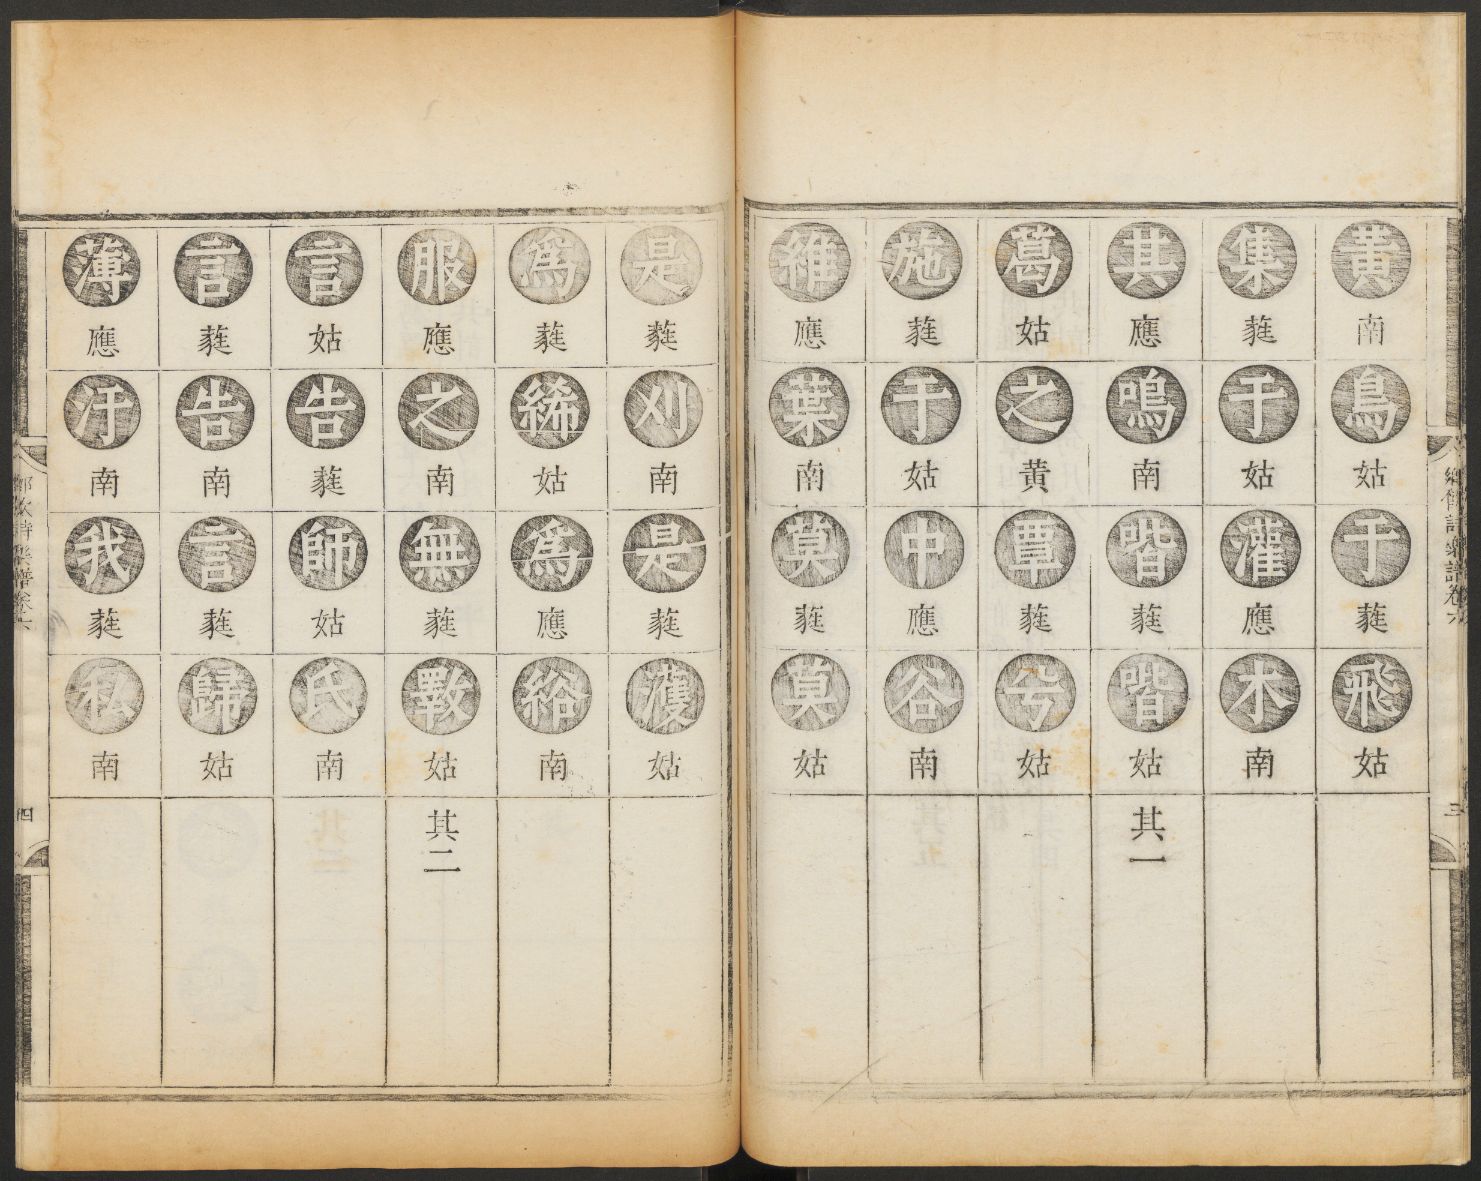 鄉飲詩樂譜卷六 三
黄南鳥姑于蕤飛姑
集蕤于姑灌應木南
其應鳴南喈蕤喈姑 其一
葛姑之黄覃蕤兮姑
施蕤于姑中應谷南
維應葉南莫蕤莫姑
是蕤刈南是蕤濩姑
爲蕤絺姑爲應綌南
服應之南無蕤斁姑 其二
言姑告蕤師姑氏南
言蕤告南言蕤歸姑
薄應汙南我蕤私南
鄉飲詩樂譜卷六 四